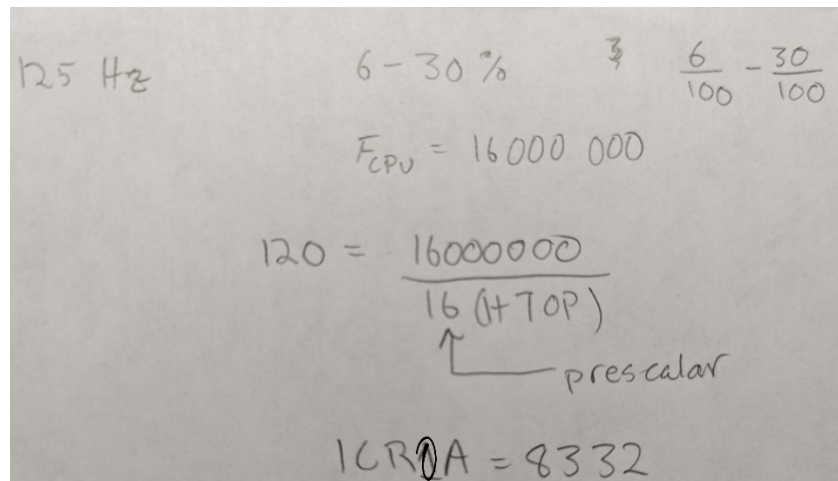 125 Hz 6 - 30 % 6/100 - 30/100
F_CPU = 16000 000
120 = 16000000 / 16 (1+TOP)
prescalar
= 8332